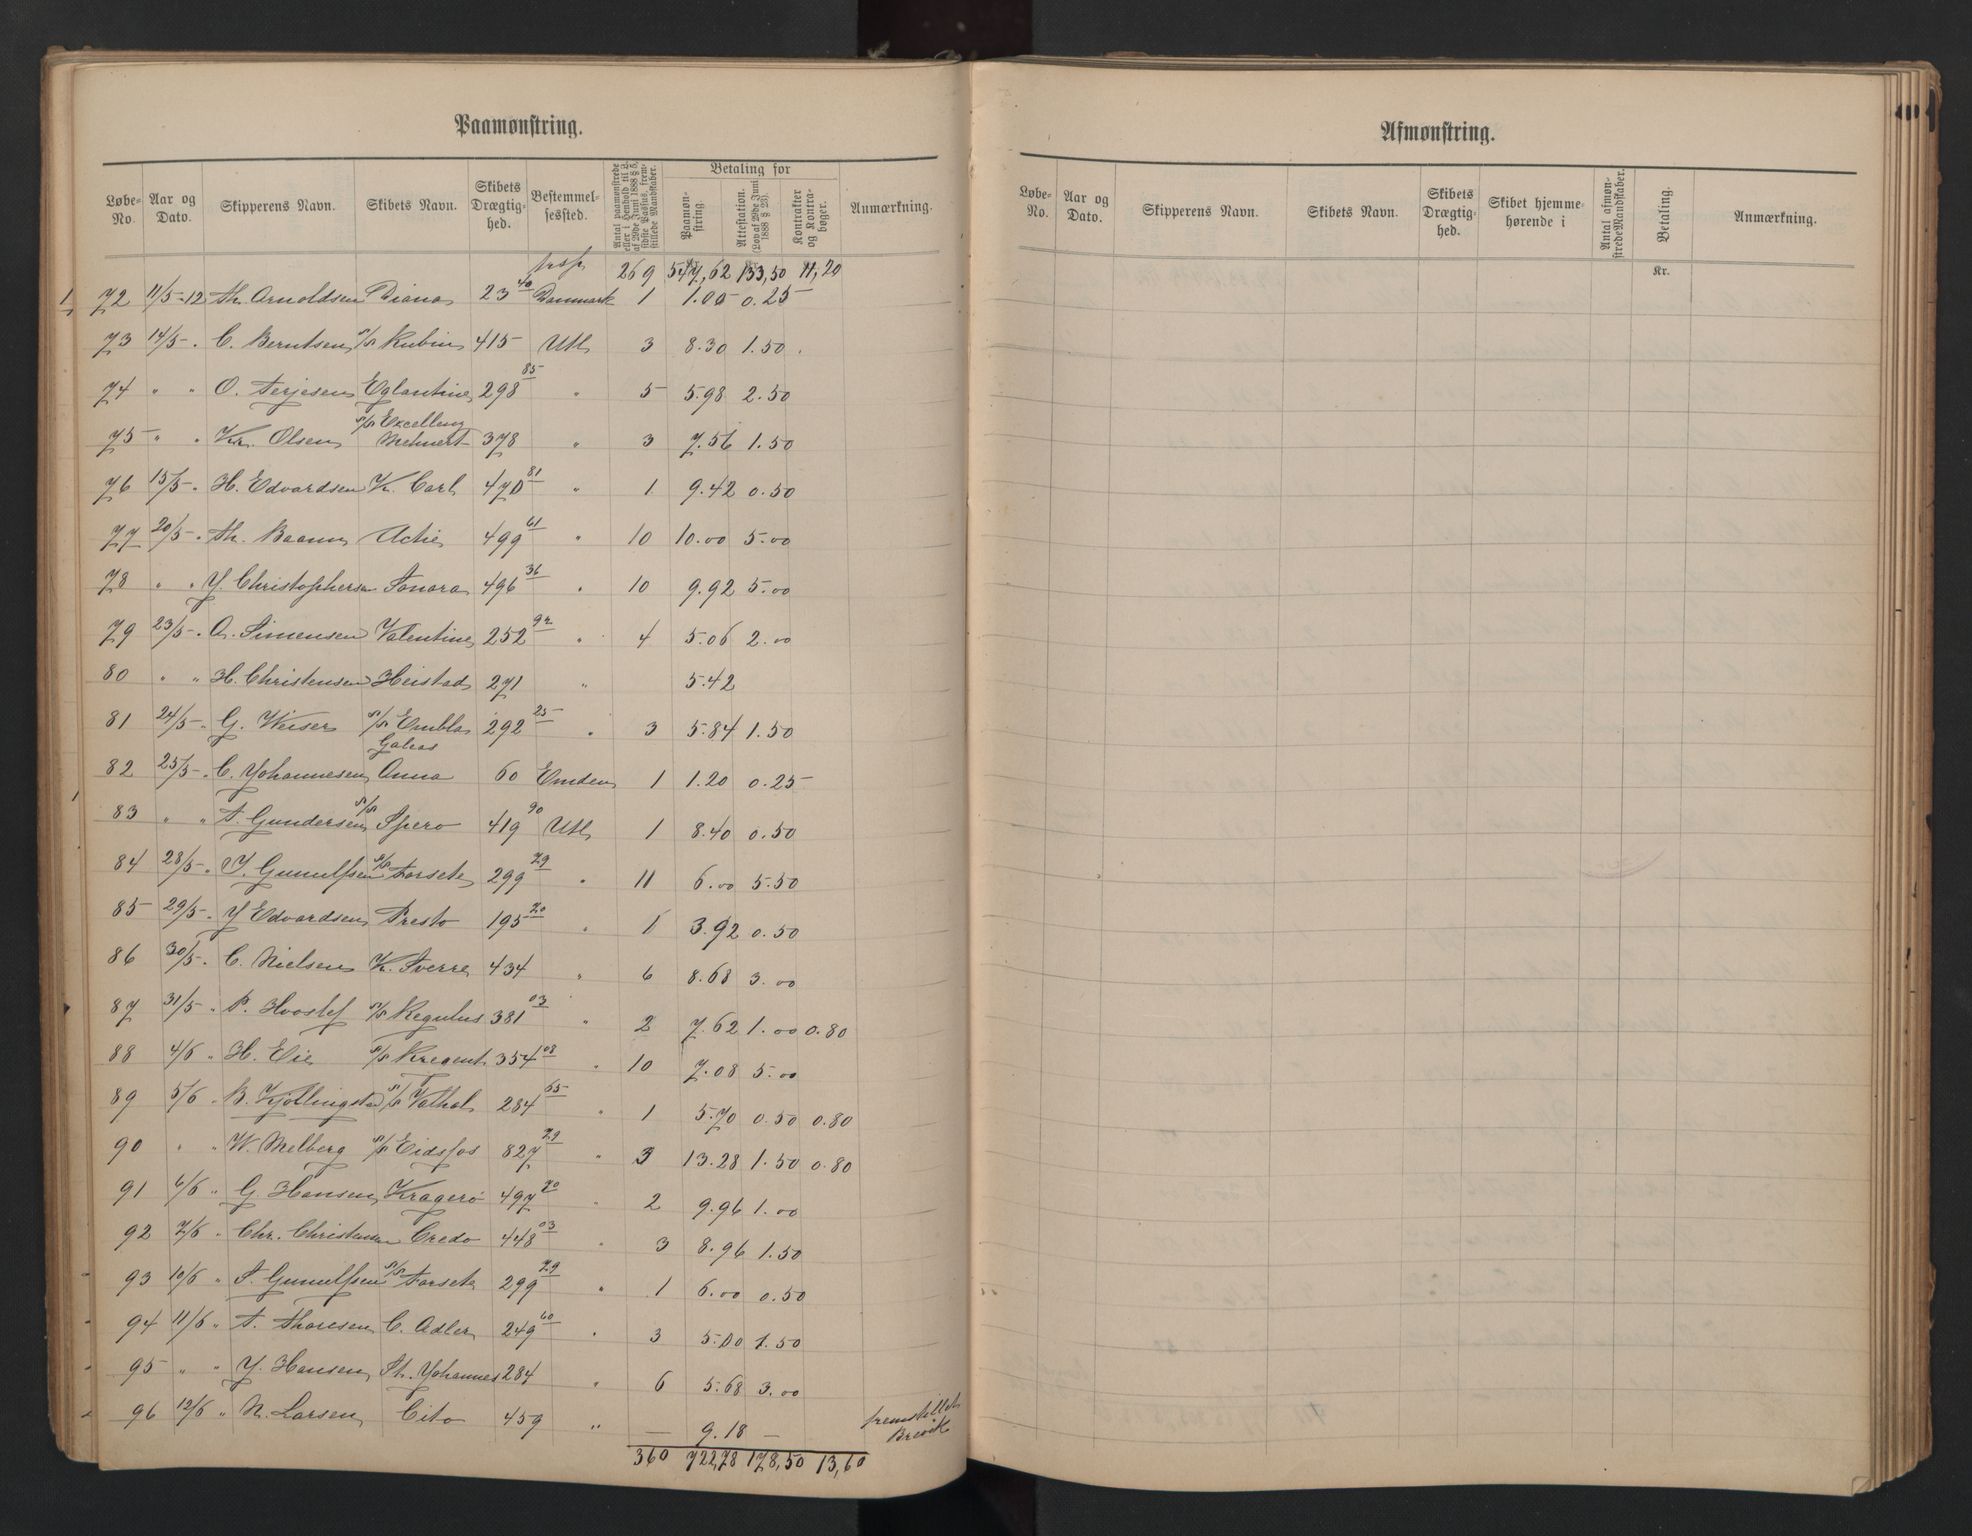 Paamønstring.
Løbe-No. Aar og Dato. Skipperens Navn. Skibets Navn. Skibets Drægtighed. Bestemmelsessted. Antal paamønstrede eller i Henhold til L. af 29de Juni 1888 § 5, sidste Passus, fremstillede Mandskaber. Betaling for Paamønstring. Attestation. (Lov af 29de Juni 1888 § 23). Kontrakter og Kontrabøger. Anmærkning.
269 547,62 133,50 11,20
72 11/5-12 Th. Arnoldsen Diana 23 40 Danmark 1 1.00 0.25
73 14/5 . C. Berntsen S/S Rubin 415 Utl 3 8.30 1.50
74 " " O. Terjesen Eglantine 298 85 " 5 5.98 2.50
75 " " Kr. Olsen S/S Excelleng Mehnert 378 " 3 7.56 1.50
76 15/5 " H. Edvardsen K. Carl 470 81 " 1 9.42 0.50
77 20/5 . Th. Baann Actie 499 61 " 10 10.00 5.00
78 " " Y. Christophersen Sonora 496 36 " 10 9.92 5.00
79 23/5 . A. Simensen Valentine 252 92 " 4 5.06 2.00
80 " " H. Christensen Heistad 271 " 5.42
81 24/5 . G. Weiser S/S Embla 292 25 " 3 5.84 1.50
82 25/5 . C. Johannesen Galeas Anna 60 Emden 1 1.20 0.25
83 " " A. Gundersen S/S Spero 419 90 Utl 1 8.40 0.50
84 28/5 " T. Gunulfsen S/S Forsete 299 79 " 11 6.00 5.50
85 29/5 . Y Edvardsen Presto 195 70 " 1 3.92 0.50
86 30/5 . C. Nielsen K. Sverre 434 " 6 8.68 3.00
87 31/5 " P. Hvoslef S/S Regulus 381 03 " 2 7.62 1.00 0.80
88 4/6 " H. Eie S/S Kregent 354 08 " 10 7.08 5.00
89 5/6 . B. S/S Valhal 284 65 " 1 5.70 0.50 0.80
90 " " W. Melberg S/S Eidsfos 827 79 " 3 13.28 1.50 0.80
91 6/6 " G. Hansen Kragerø 497 70 " 2 9.96 1.00
92 7/6 " Chr. Christensen Credo 448 03 " 3 8.96 1.50
93 10/6 " T. Gunulfsen S/S Forsete 299 79 " 1 6.00 0.50
94 11/6 " A. Thoresen C. Adler 249 60 " 3 5.00 1.50
95 " " Y. Hansen St. Johannes 284 " 6 5.68 3.00
96 12/6 " N. Larsen Cito 459 " — 9.18 — fremstillet Brevik
360 722,78 178,50 13,60
Afmønstring.
Løbe-No. Aar og Dato. Skipperens Navn. Skibets Navn. Skibets Drægtighed. Skibet hjemmehørende i Antal afmønstrede Mandskaber. Betaling. Anmærkning.
Kr.